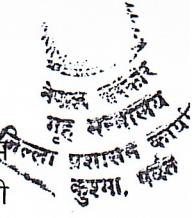 नेपाल सरकार
गृह मन्त्रालय
जिल्ला प्रशासन कार्या
कुश्मा, पर्वत
ी